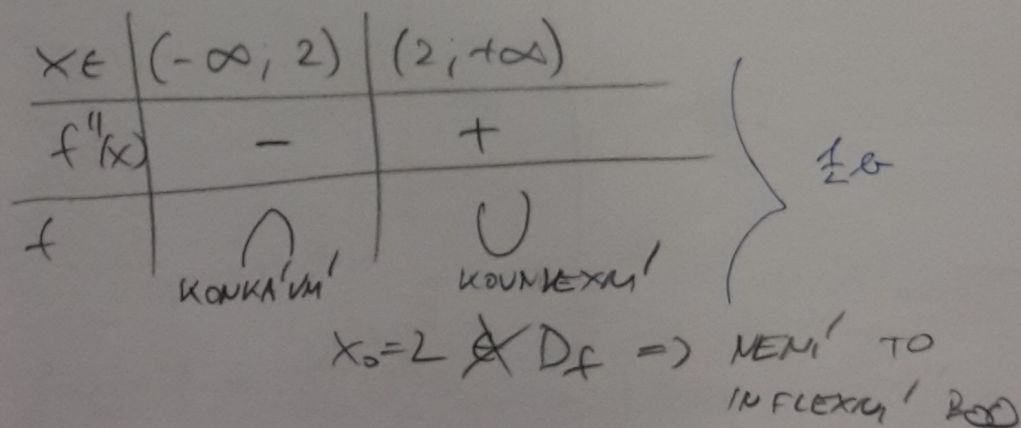 x∈ (-∞; 2) (2; +∞)
f''(x) - +
f ∩ ∪
KONKÁVNÍ KOUNVEXNÍ
1/2 b
x₀=2 ∉ D_f => NENÍ TO
INFLEXNÍ BOD